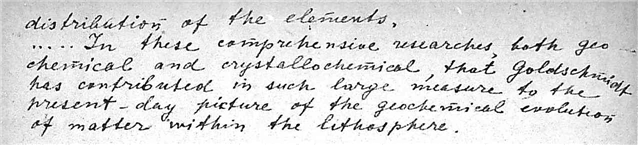 distribution of the elements.
..... In these comprehensive researches, both geo
chemical and crystallochemical, that Goldschmidt
has contributed in such large measure to the
present-day picture of the geochemical evolution
of matter within the lithosphere.